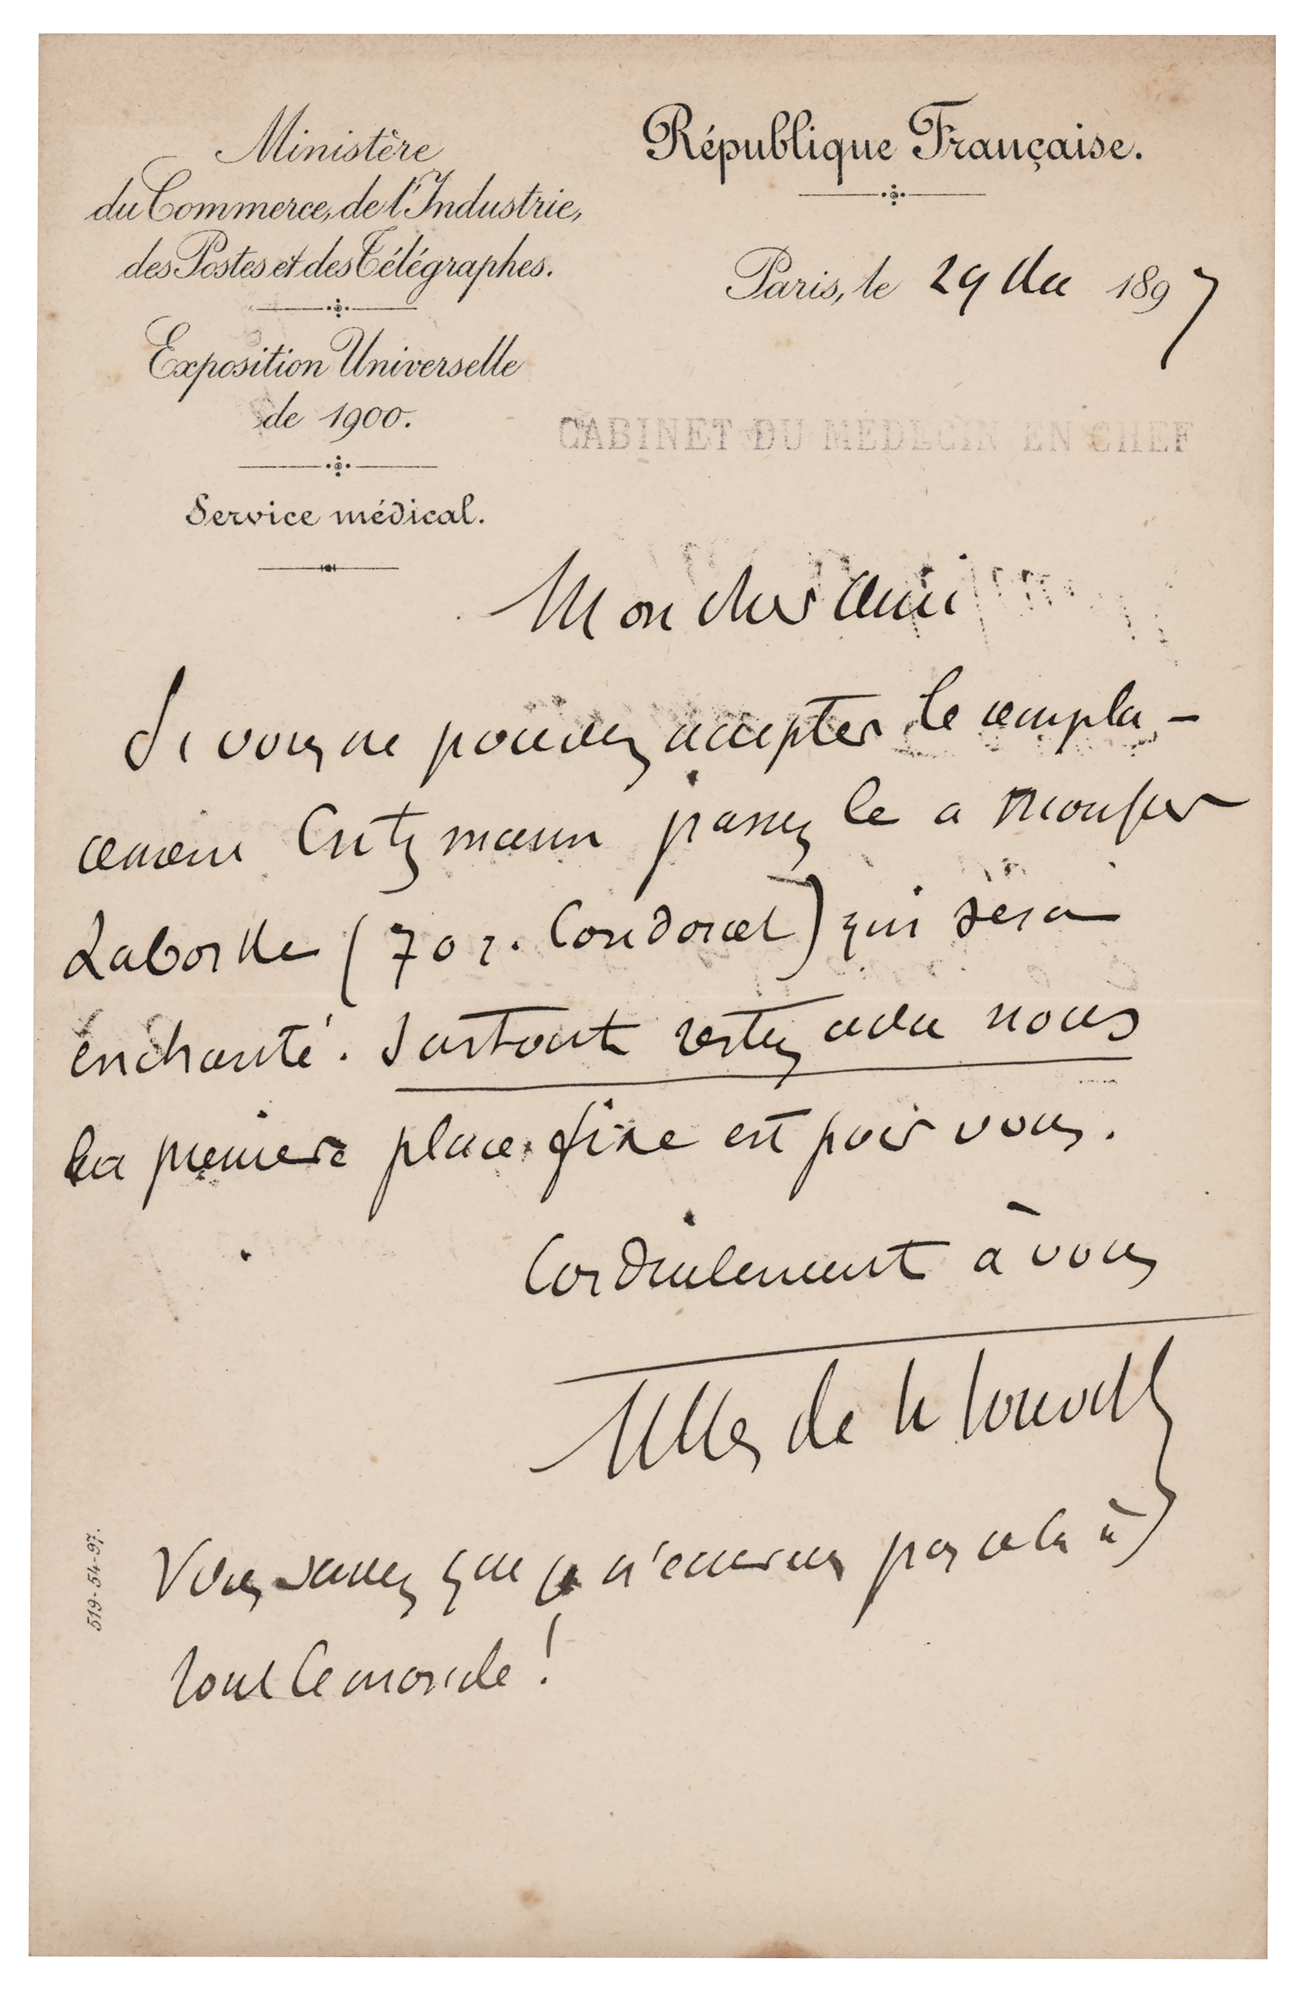 Ministère
du Commerce, de l'Industrie,
des Postes et des Télégraphes.
Exposition Universelle
de 1900.
Service médical.
République Française.
Paris, le 29 Dec 1897
CABINET DU MEDECIN EN CHEF
Mon cher ami
Si vous ne pouvez accepter le rempla-
cement passez le a Monsieur
Laborde (70 r. Condorcet) qui sera
enchanté. Surtout restez avec nous
La premiere place fixe est pour vous.
Cordialement à vous
Gilles de la Tourette
Vous savez que je n'ecrirais pas cela à
tout le monde !
519-54-97.